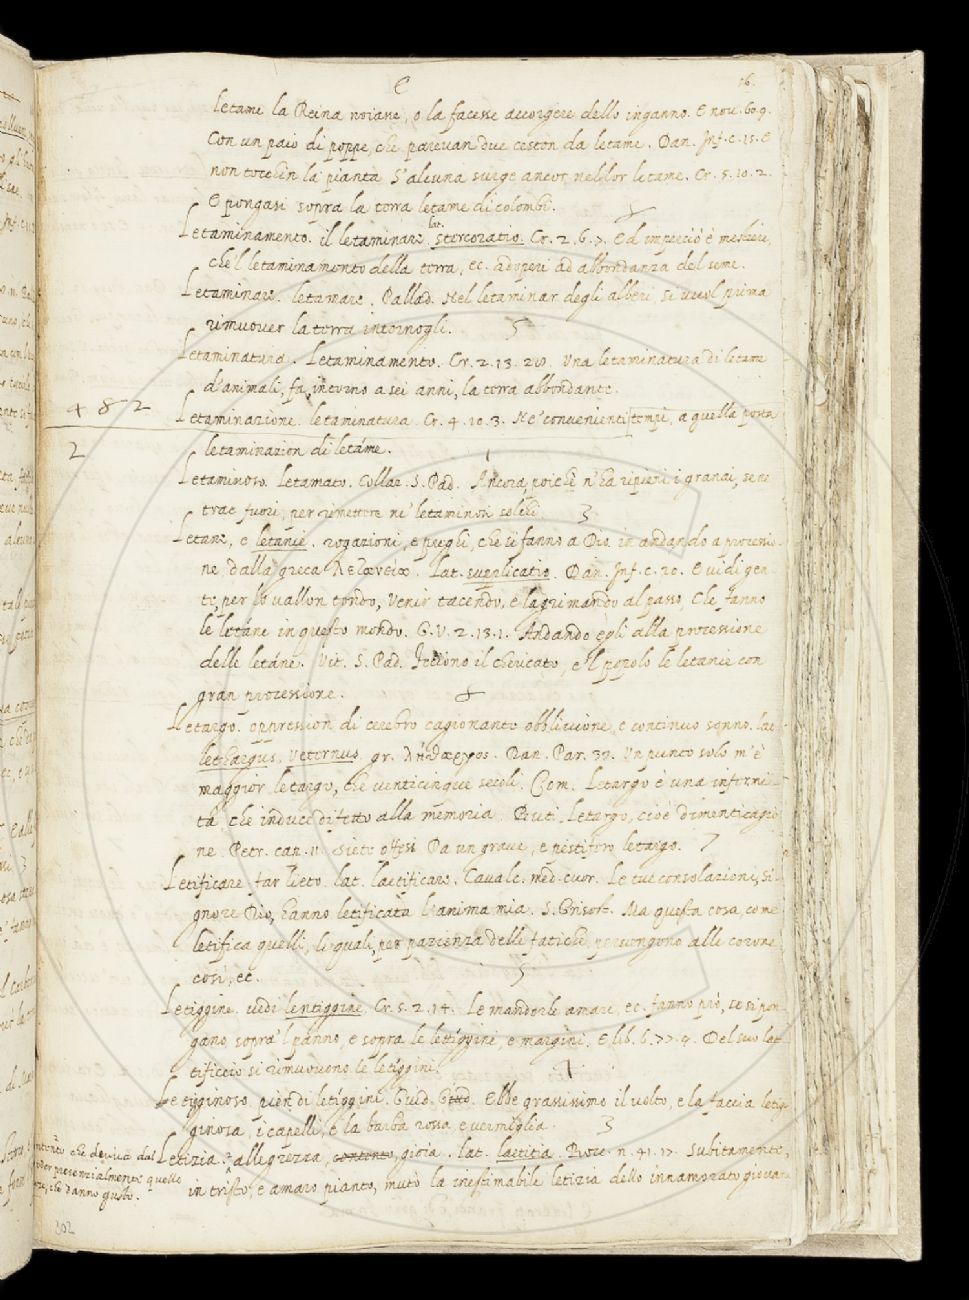 letame la Reina noiare, o la facesse accorgere dello inganno. E nou. 60. 9.
Con un paio di poppe, che parevan due ceston da letame. Dan. Inf. c. 15. E
non tocchin la pianta S'alcuna surge ancor nel lor letame. Cr. 5. 10. 2.
E pongasi sopra la terra letame di colombi.
Letaminamento. il letaminare lat. stercoratio. Cr. 2. 6. 7. Ed imperciò è mestiere,
che 'l letaminamento della terra, ec. adoperi ad abbondanza del seme.
Letaminare. letamare. Pallad. Nel letaminar degli alberi si vuol prima
rimuover la terra intornogli. 5
Letaminatura. Letaminamento. Cr. 2. 13. 20. Una letaminatura di letame
d'animali, fa, intorno a sei anni, la terra abbondante.
4 8 2
Letaminazione. letaminatura. Cr. 4. 10. 3. Ne' convenienti tempi, a quella posta
2
letaminazion di letáme.
Letaminoso. Letamato. Collaz. S. Pad. Ancora, poichè n'ha ripieni i granai, se ne
trae fuori, per rimettere ne' letaminosi solchi 3
Letane, e letanie. rogazioni, e prieghi, che si fanno a Dio in andando a processio-
ne, dalla greca λιτανεία. Lat. supplicatio. Dan. Inf. c. 20. E vidi gen-
te, per lo vallon tondo, Venir tacendo, e lagrimando al passo, Che fanno
le letáne in questo mondo. G. V. 2. 13. 1. Andando egli alla processione
delle letáne. Vit. S. Pad. il chericato, e 'l popolo le letanie con
gran processione.
Letargo. oppression di cerebro cagionante obblivione, e continuo sonno. lat.
lethargus, veternus gr. λήθαργος. Dan. Par. 33. Un punto solo m'è
maggior letargo, Che venticinque secoli. Com. Letargo è una infermi-
tà, che induce difetto alla memoria. Buti. Letargo, cioè dimenticagio
ne. Petr. can. 11. Siete offesi Da un grave, e pestifero letargo. 7
Letificare far lieto. lat. laetificare. Cavalc. med. cuor. Le tue consolazioni, Si-
gnore Dio, hanno letificata l'anima mia. S. Grisost. Ma questa cosa, come
letifica quelli, li quali, per pazienza delle fatiche, pervengono alle corone
così, ec. 5
Letiggine. vedi lentiggine. Cr. 5. 2. 14. Le mandorle amare, ec. fanno prò, se si pon-
gano, sopra 'l panno, e sopra le letiggini, e margini. E lib. 6. 77. 9. Del suo lat-
tificcio si rimuovono le letiggini.
Letigginoso, pien di letiggini. Guid. Giud. Ebbe grassissimo il volto, e la faccia letig-
ginosa, i capelli, e la barba rossa e vermiglia. 3
Letizia. allegrezza, contento, gioia. lat. laetitia. Bocc. n. 41. 17. Subitamente,
in tristo, e amaro pianto, mutò la inestimabile letizia dello innamorato giovane
che deriva dal
presenzialmente quelle
che danno gusto.
802